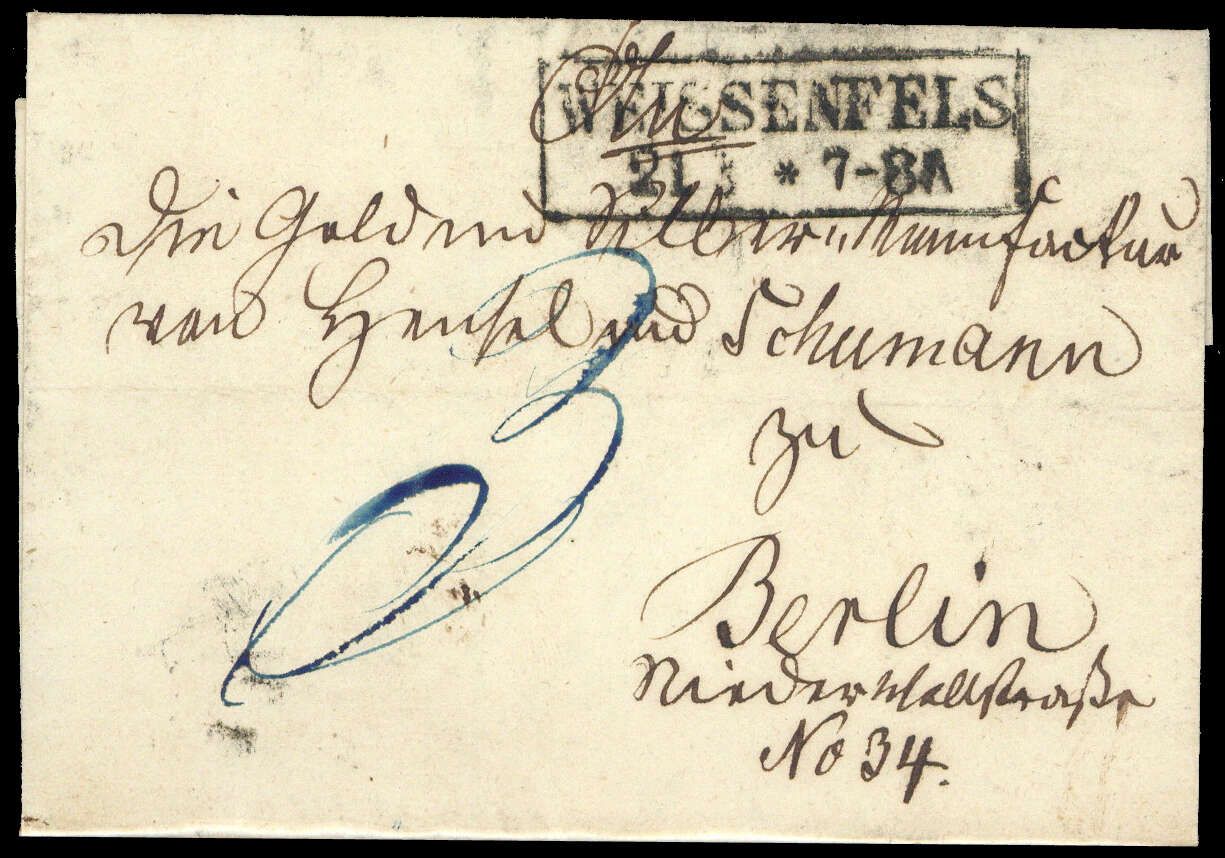 An
WEISSENFELS
21 * 7-8A
die Gold und Silber-Manufactur
von Hensel und Schumann
zu
Berlin
Niederwallstraße
No 34.
3